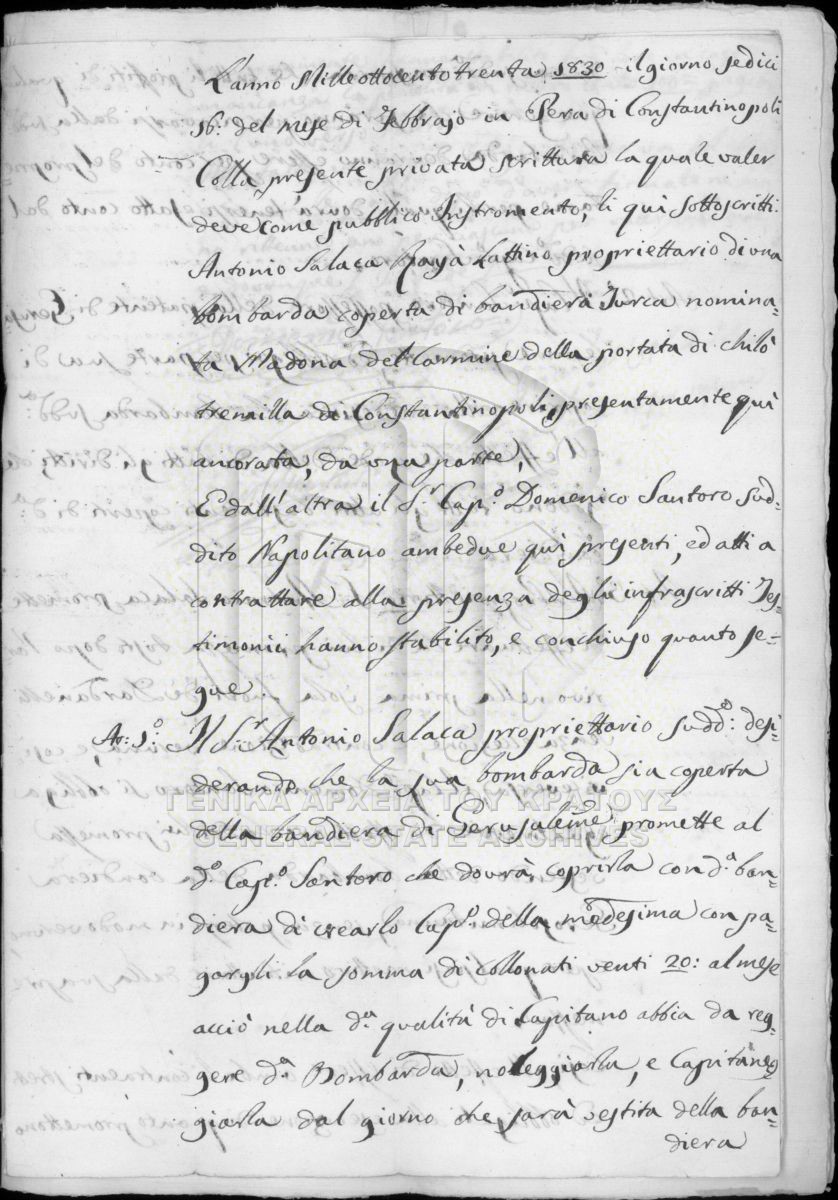 L'anno Mille ottocento trenta 1830 il giorno sedici
16: del mese di Febbrajo in Pera di Constantinopoli
Colla presente privata scrittura la quale valer
deve come pubblico Instromento, li quì sottoscritti
Antonio Salaca Rayà Lattino propriettario di una
bombarda coperta di bandiera Turca nomina-
ta Madona del Carmine della portata di chilò
tremilla di Constantinopoli, presentamente quì
ancorata, da una parte,
E dall'altra il Sr. Capo. Domenico Santoro sud-
dito Napolitano ambedue quì presenti, ed atti a
contrattare alla presenza degli infrascritti Tes-
timonii hanno stabilito, e conchiuso quanto se-
gue
Ar: 1o: Il Sr. Antonio Salaca propriettario suddo: desi-
derando che la sua bombarda sia coperta
della bandiera di Gerusaleme promette al
do. Capo. Santoro che dovrà coprirla con da. ban-
diera di crearlo Capo. della medesima con pa-
gargli la somma di collonati venti 20: al mese
acciò nella da. qualità di Capitano abbia da reg-
gere da. Bombarda, noleggiarla, e Capitaneg-
giarla dal giorno che sarà vestita della ban-
diera
ΓΕΝΙΚΑ ΑΡΧΕΙΑ ΤΟΥ ΚΡΑΤΟΥΣ
GENERAL STATE ARCHIVES